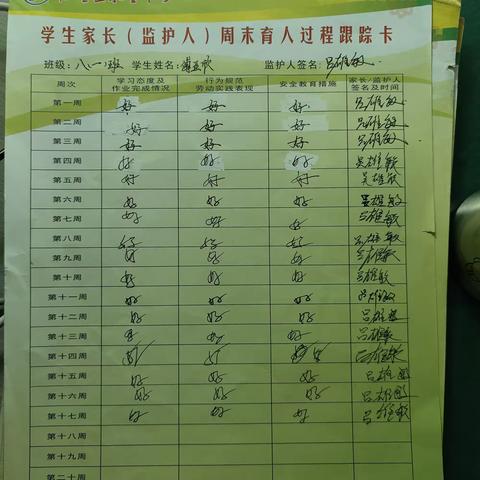 学生家长（监护人）周末育人过程跟踪卡
班级：八一班 学生姓名： 监护人签名：吕雄敏
周次 学习态度及作业完成情况 行为规范劳动实践表现 安全教育措施 家长/监护人签名及时间
第一周 好 好 好 吕雄敏
第二周 好 好 好 吕雄敏
第三周 好 好 好 吕雄敏
第四周 好 好 好 吴雄敏
第五周 好 好 好 吴雄敏
第六周 好 好 好 吴雄敏
第七周 好 好 好 吕雄敏
第八周 好 好 好 吕雄敏
第九周 好 好 好 吕雄敏
第十周 好 好 好 吕雄敏
第十一周 好 好 好 吕雄敏
第十二周 好 好 好 吕雄敏
第十三周 好 好 好 吕雄敏
第十四周 好 好 吕雄敏
第十五周 好 好 好 吕雄敏
第十六周 好 好 好 吕雄敏
第十七周 好 好 好 吕雄敏
第十八周
第十九周
第二十周